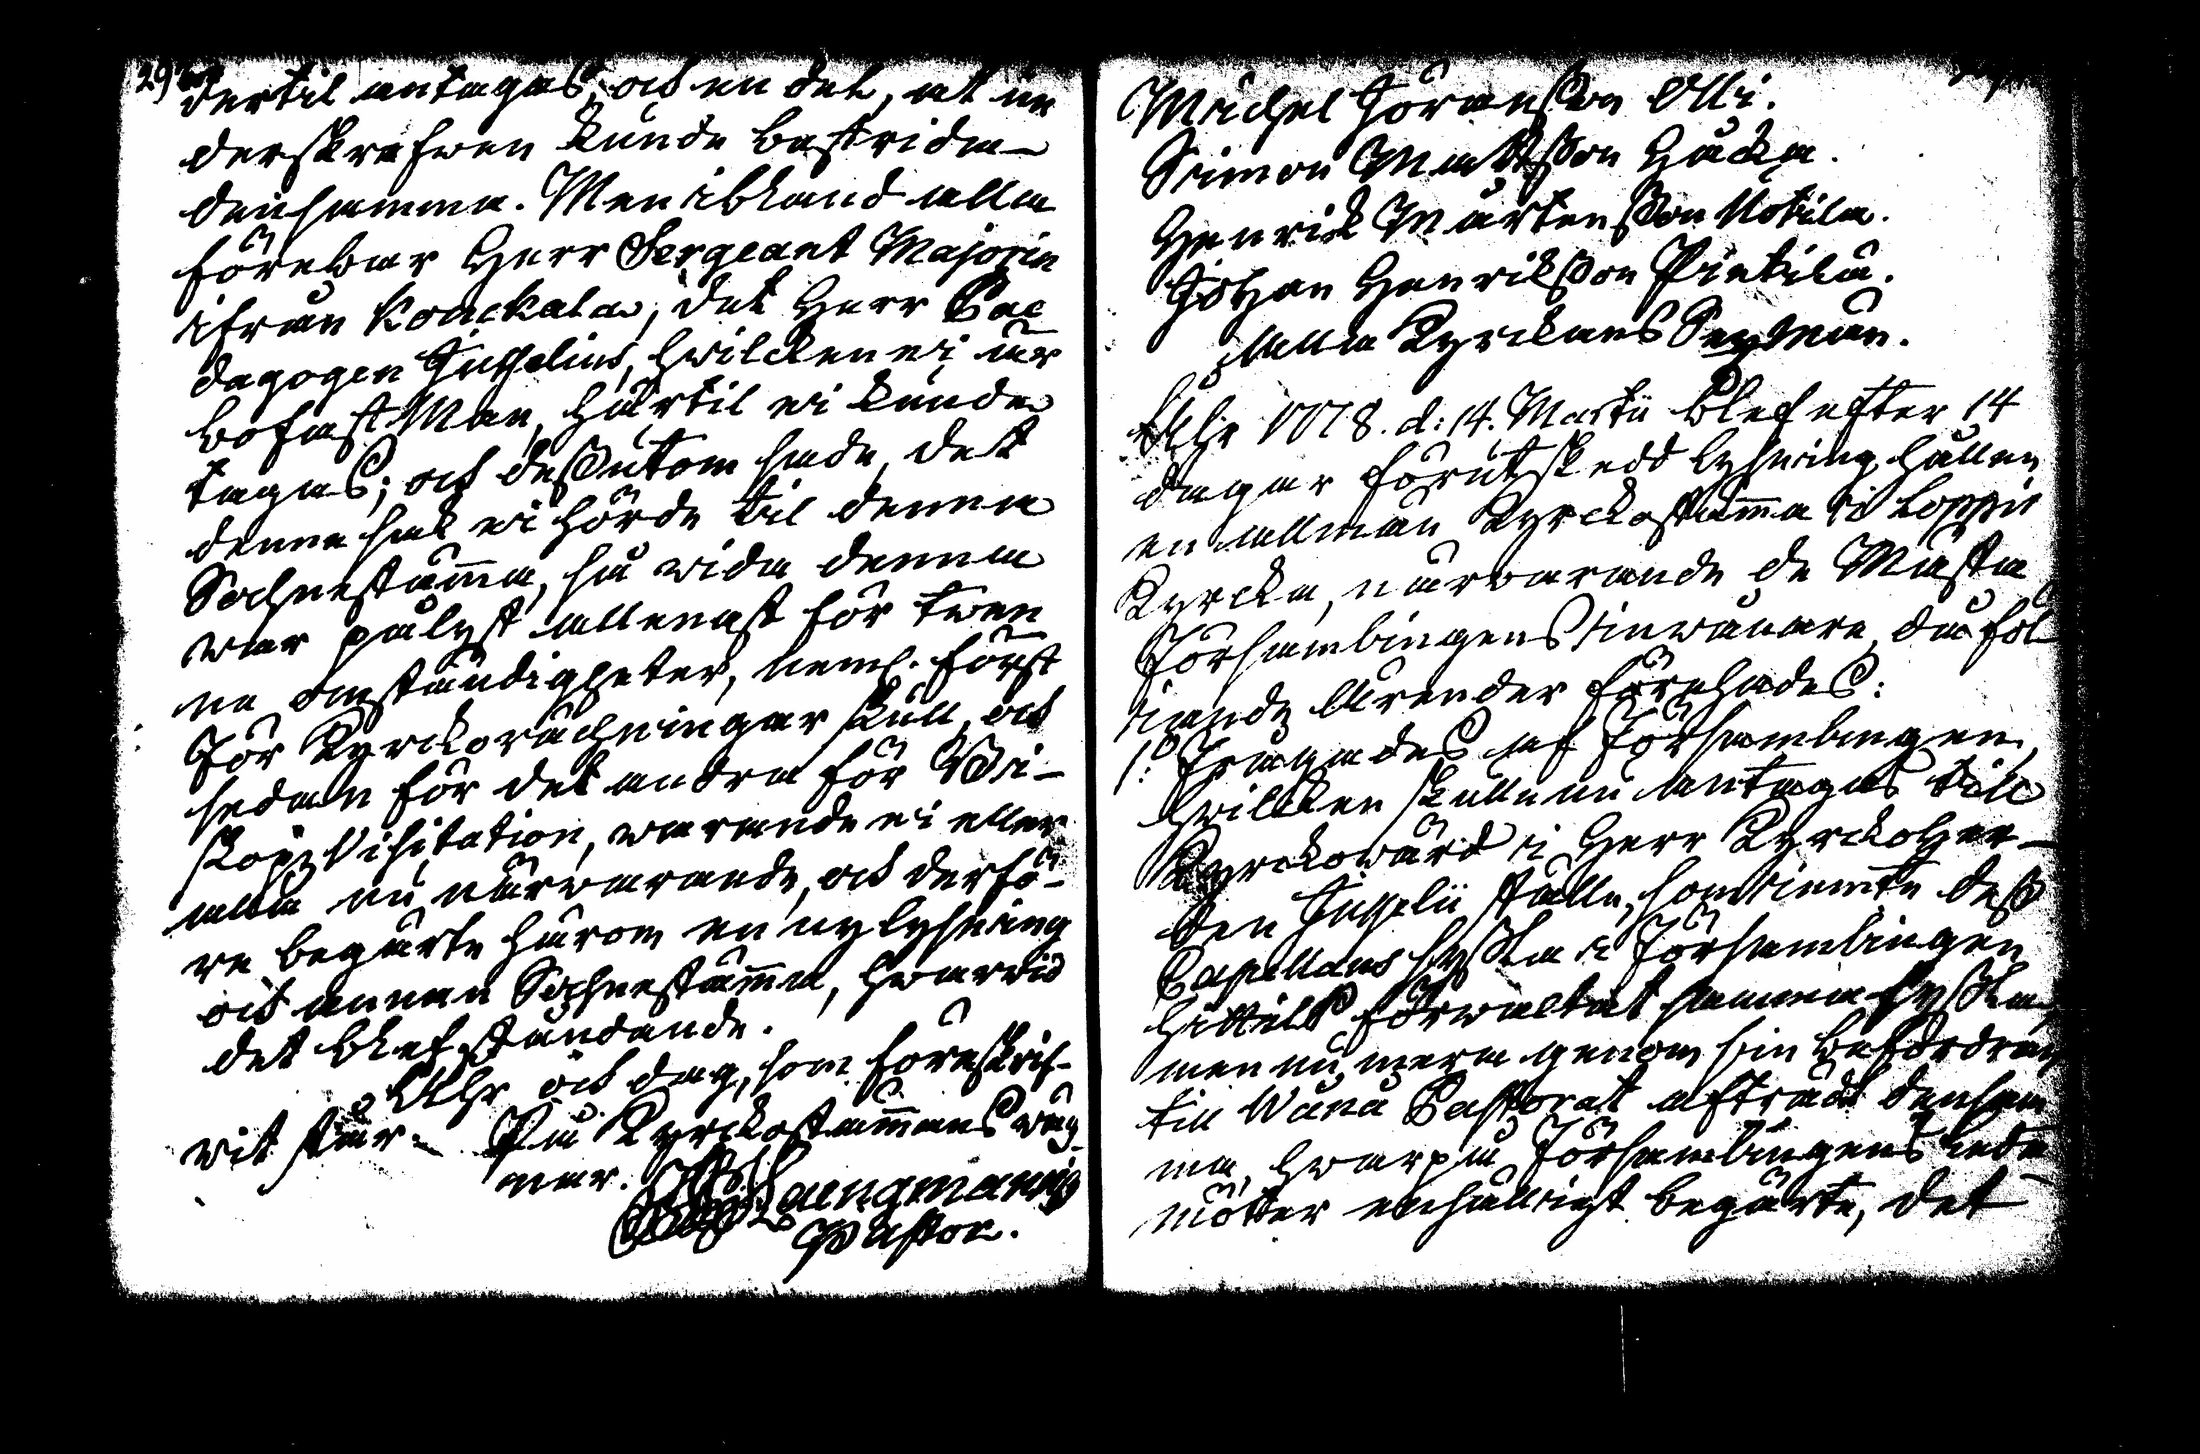 296
dertil antagas, och en del, at un
derskrefwen kunde bestrida
densamma. Men ibland alla
förebar Herr Sergeant Majorin
ifrån Kouckala, det Herr Pae
dagogen Jusselius, hwilcken ej är
bofast Man, härtil ei kunde
tagas; och dessutom hade det
denna sak ei hörde til denna
Sochnestäma, så vida denna
war pålyst allenast för twen
ne omständigheter, neml. först
för Kyrckoräckningar skull, och
sedan för det andra för Bi-
skops Visitation, warande ei eller
alla nu närwarande, och derfö-
re begärte härom en ny lysning
och annan Sochnestäma, hwarvid
det blef ståndande.
Åhr och dag, som föreskrif-
wit står. På Kyrckostämmans väg
nar.
Laengmannij
Pastor.
Michel Jöransson Olli.
Simon Mattsson Hucka.
Henrick Mårtensson Notila.
Johan Henriksson Pietilä.
alla Kyrckans Sexmän.
Åhr 1778. d: 14. Martii blef efter 14
dagar förutskedd lysning hållen
en allmän Kyrckostäma i Loppis
Kyrcka, närvarande de Mästa
Församlingens inwånare, då föl
jande Ärender förehades:
1: Frågades af Församlingen,
hwilcken skulle nu antagas till
Kyrckowärd i Herr Kyrckoher-
den Jusselii ställe, som jemte dess
Capellans syssla i Församlingen
hittils förwaltat samma syssla,
men nu mera genom sin befordran
till Wånå Pastorat afträdt densam
ma, hwarpå Församlingens leda
möter enhälligt begärte, det